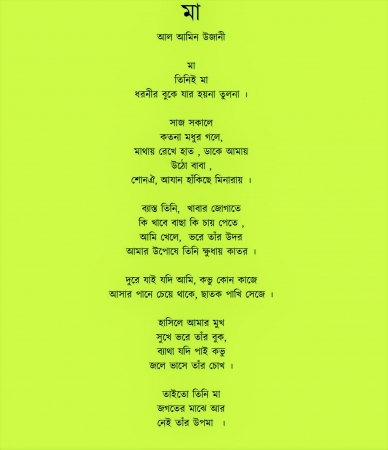 মা
আল আমিন উজানী
মা
তিনিই মা
ধরনীর বুকে যার হয়না তুলনা ।
সাজ সকালে
কতনা মধুর গলে,
মাথায় রেখে হাত , ডাকে আমায়
উঠো বাবা ,
শোনঐ, আযান হাঁকিছে মিনারায় ।
ব্যাস্ত তিনি, খাবার জোগাতে
কি খাবে বাছা কি চায় পেতে ,
আমি খেলে, ভরে তাঁর উদর
আমার উপোষে তিনি ক্ষুধায় কাতর ।
দুরে যাই যদি আমি, কভু কোন কাজে
আসার পানে চেয়ে থাকে, ছাতক পাখি সেজে ।
হাসিলে আমার মুখ
সুখে ভরে তাঁর বুক,
ব্যাথা যদি পাই কভু
জলে ভাসে তাঁর চোখ ।
তাইতো তিনি মা
জগতের মাঝে আর
নেই তাঁর উপমা ।